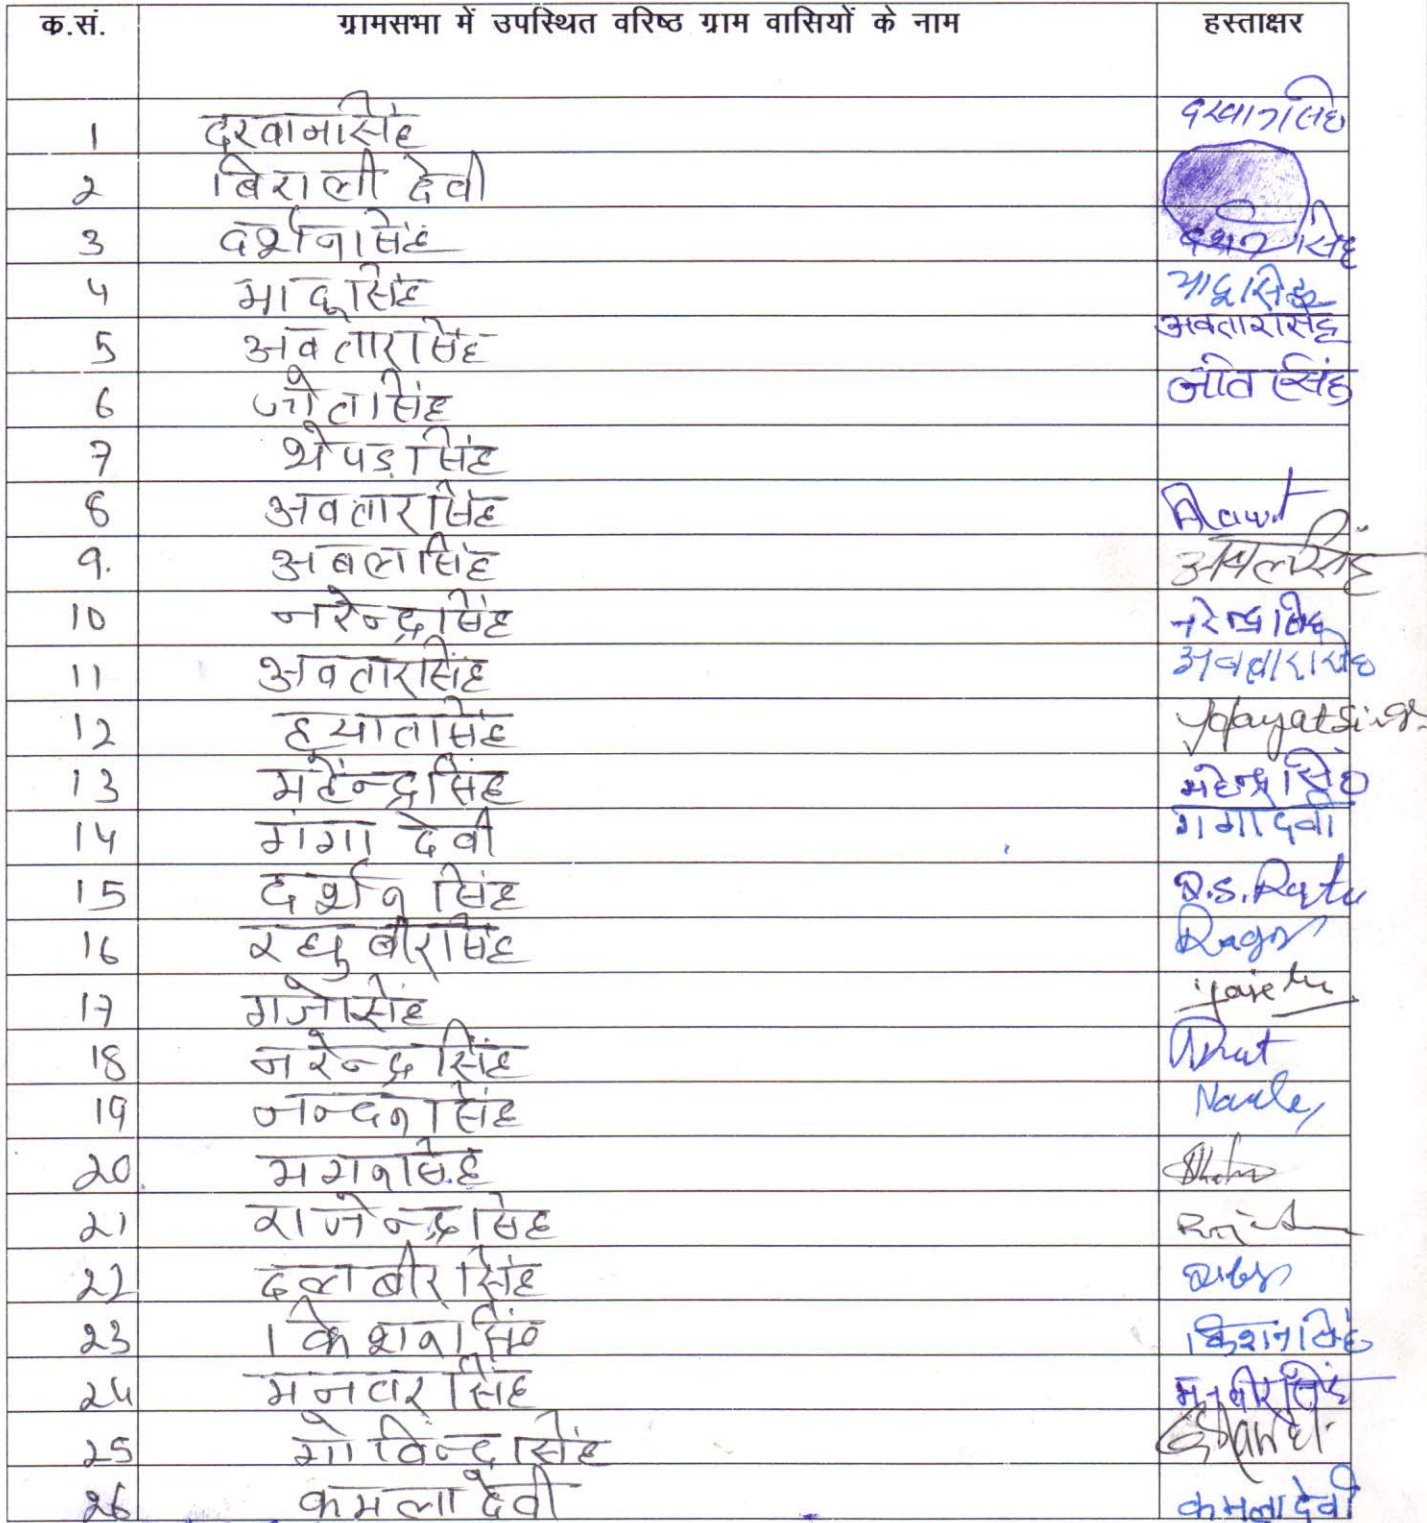 क.सं. ग्रामसभा में उपस्थित वरिष्ठ ग्राम वासियों के नाम हस्ताक्षर
1 दरवानसिंह दरवानसिंह
2 बिराली देवी
3 दर्शनसिंह दर्शन सिंह
4 मादूसिंह मादूसिंह
5 अवतारसिंह अवतारसिंह
6 जीतसिंह जीत सिंह
7 थेपड़सिंह
8 अवतारसिंह Rawat
9. अबलसिंह अबलसिंह
10 नरेन्द्रसिंह नरेन्द्रसिंह
11 अवतारसिंह अवतारसिंह
12 हयातसिंह Hayatsingh
13 महेन्द्रसिंह महेन्द्रसिंह
14 गंगा देवी गंगादेवी
15 दर्शन सिंह D.S.
16 रघुबीरसिंह
17 गजेसिंह
18 नरेन्द्र सिंह
19 नन्दनसिंह
20 मगनसिंह
21 राजेन्द्रसिंह
22 दलबीर सिंह
23 किशनसिंह किशनसिंह
24 मनवर सिंह मनवीरसिंह
25 गोविन्दसिंह
26 कमला देवी कमला देवी